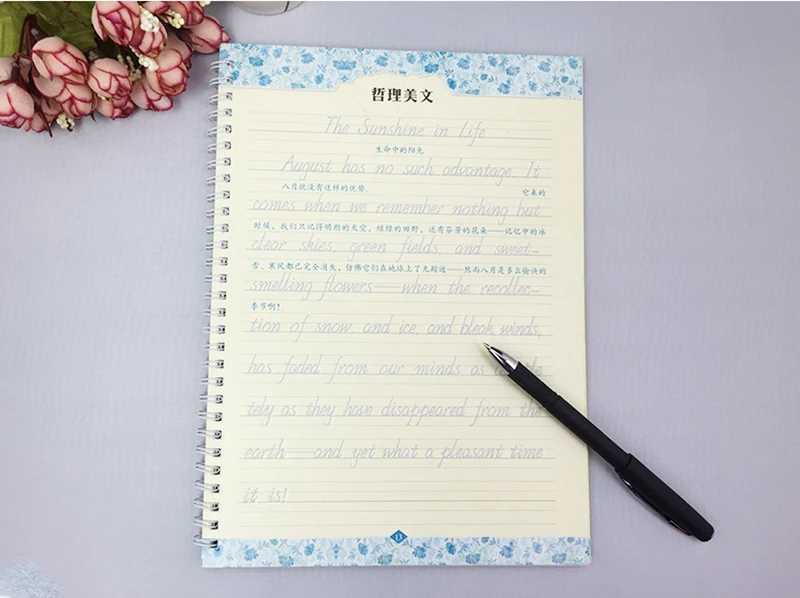 哲理美文
The Sunshine in Life
生命中的阳光
August has no such advantage. It
八月就没有这样的优势。 它来的
comes when we remember nothing but
时候，我们只记得明朗的天空，绿绿的田野，还有芬芳的花朵——记忆中的冰
clear skies, green fields, and sweet-
雪、寒风都已完全消失，仿佛它们在地球上了无踪迹——然而八月是多么愉快的
smelling flowers——when the recollec-
季节啊！
tion of snow, and ice, and bleak winds,
has faded from our minds as
tely as they have disappeared from the
earth——and yet what a pleasant time
it is!
13